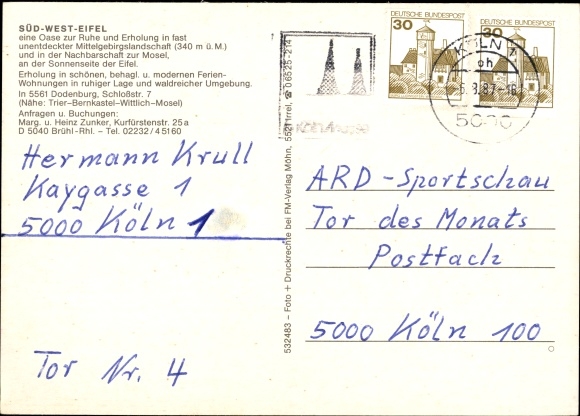 SÜD-WEST-EIFEL
eine Oase zur Ruhe und Erholung in fast
unentdeckter Mittelgebirgslandschaft (340 m ü. M.)
und in der Nachbarschaft zur Mosel,
an der Sonnenseite der Eifel.
Erholung in schönen, behagl. u. modernen Ferien-
Wohnungen in ruhiger Lage und waldreicher Umgebung.
in 5561 Dodenburg, Schloßstr. 7
(Nähe: Trier–Bernkastel–Wittlich–Mosel)
Anfragen u. Buchungen:
Marg. u. Heinz Zunker, Kurfürstenstr. 25a
D 5040 Brühl-Rhl. – Tel. 02232/45160
Hermann Krull
Kaygasse 1
5000 Köln 1
Tor Nr. 4
532483 – Foto + Druckrechte bei FM-Verlag Möhn, 5521 Irrel, ☎ 06525-214
30
DEUTSCHE BUNDESPOST
30
DEUTSCHE BUNDESPOST
KÖLN
oh
.8.87-18
ARD-Sportschau
Tor des Monats
Postfach
5000 Köln 100